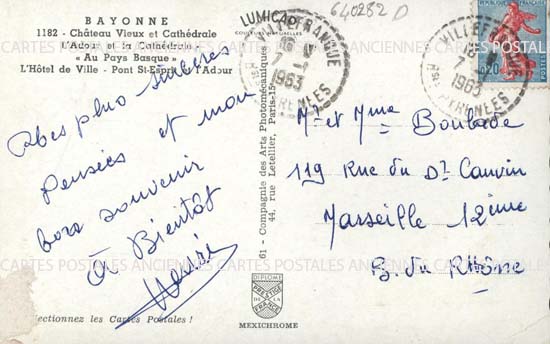 BAYONNE
1182 - Château Vieux et Cathédrale
L'Adour et la Cathédrale
« Au Pays Basque »
L'Hôtel de Ville - Pont St-Esprit et l'Adour
Mes plus sincères
Pensées et mon
bon souvenir
à Bientôt
Sélectionnez les Cartes Postales !
LUMICAP
COULEURS NATURELLES
640282 D
VILLEFRANQUE
7 - 1
1963
PYRENEES
61 - Compagnie des Arts Photomécaniques
44, rue Letellier, Paris-15e
DIPLOME
PRESTIGE
DE LA
FRANCE
MEXICHROME
REPUBLIQUE FRANCAISE
0,20
VILLEFRANQUE
18
7
1963
Bses PYRENEES
Mr et Mme Boulade
119 Rue du Dr Cauvin
Marseille 12ème
B. du Rhône
CARTES POSTALES ANCIENNES CARTES POSTALES ANCIENNES CARTES POSTALES